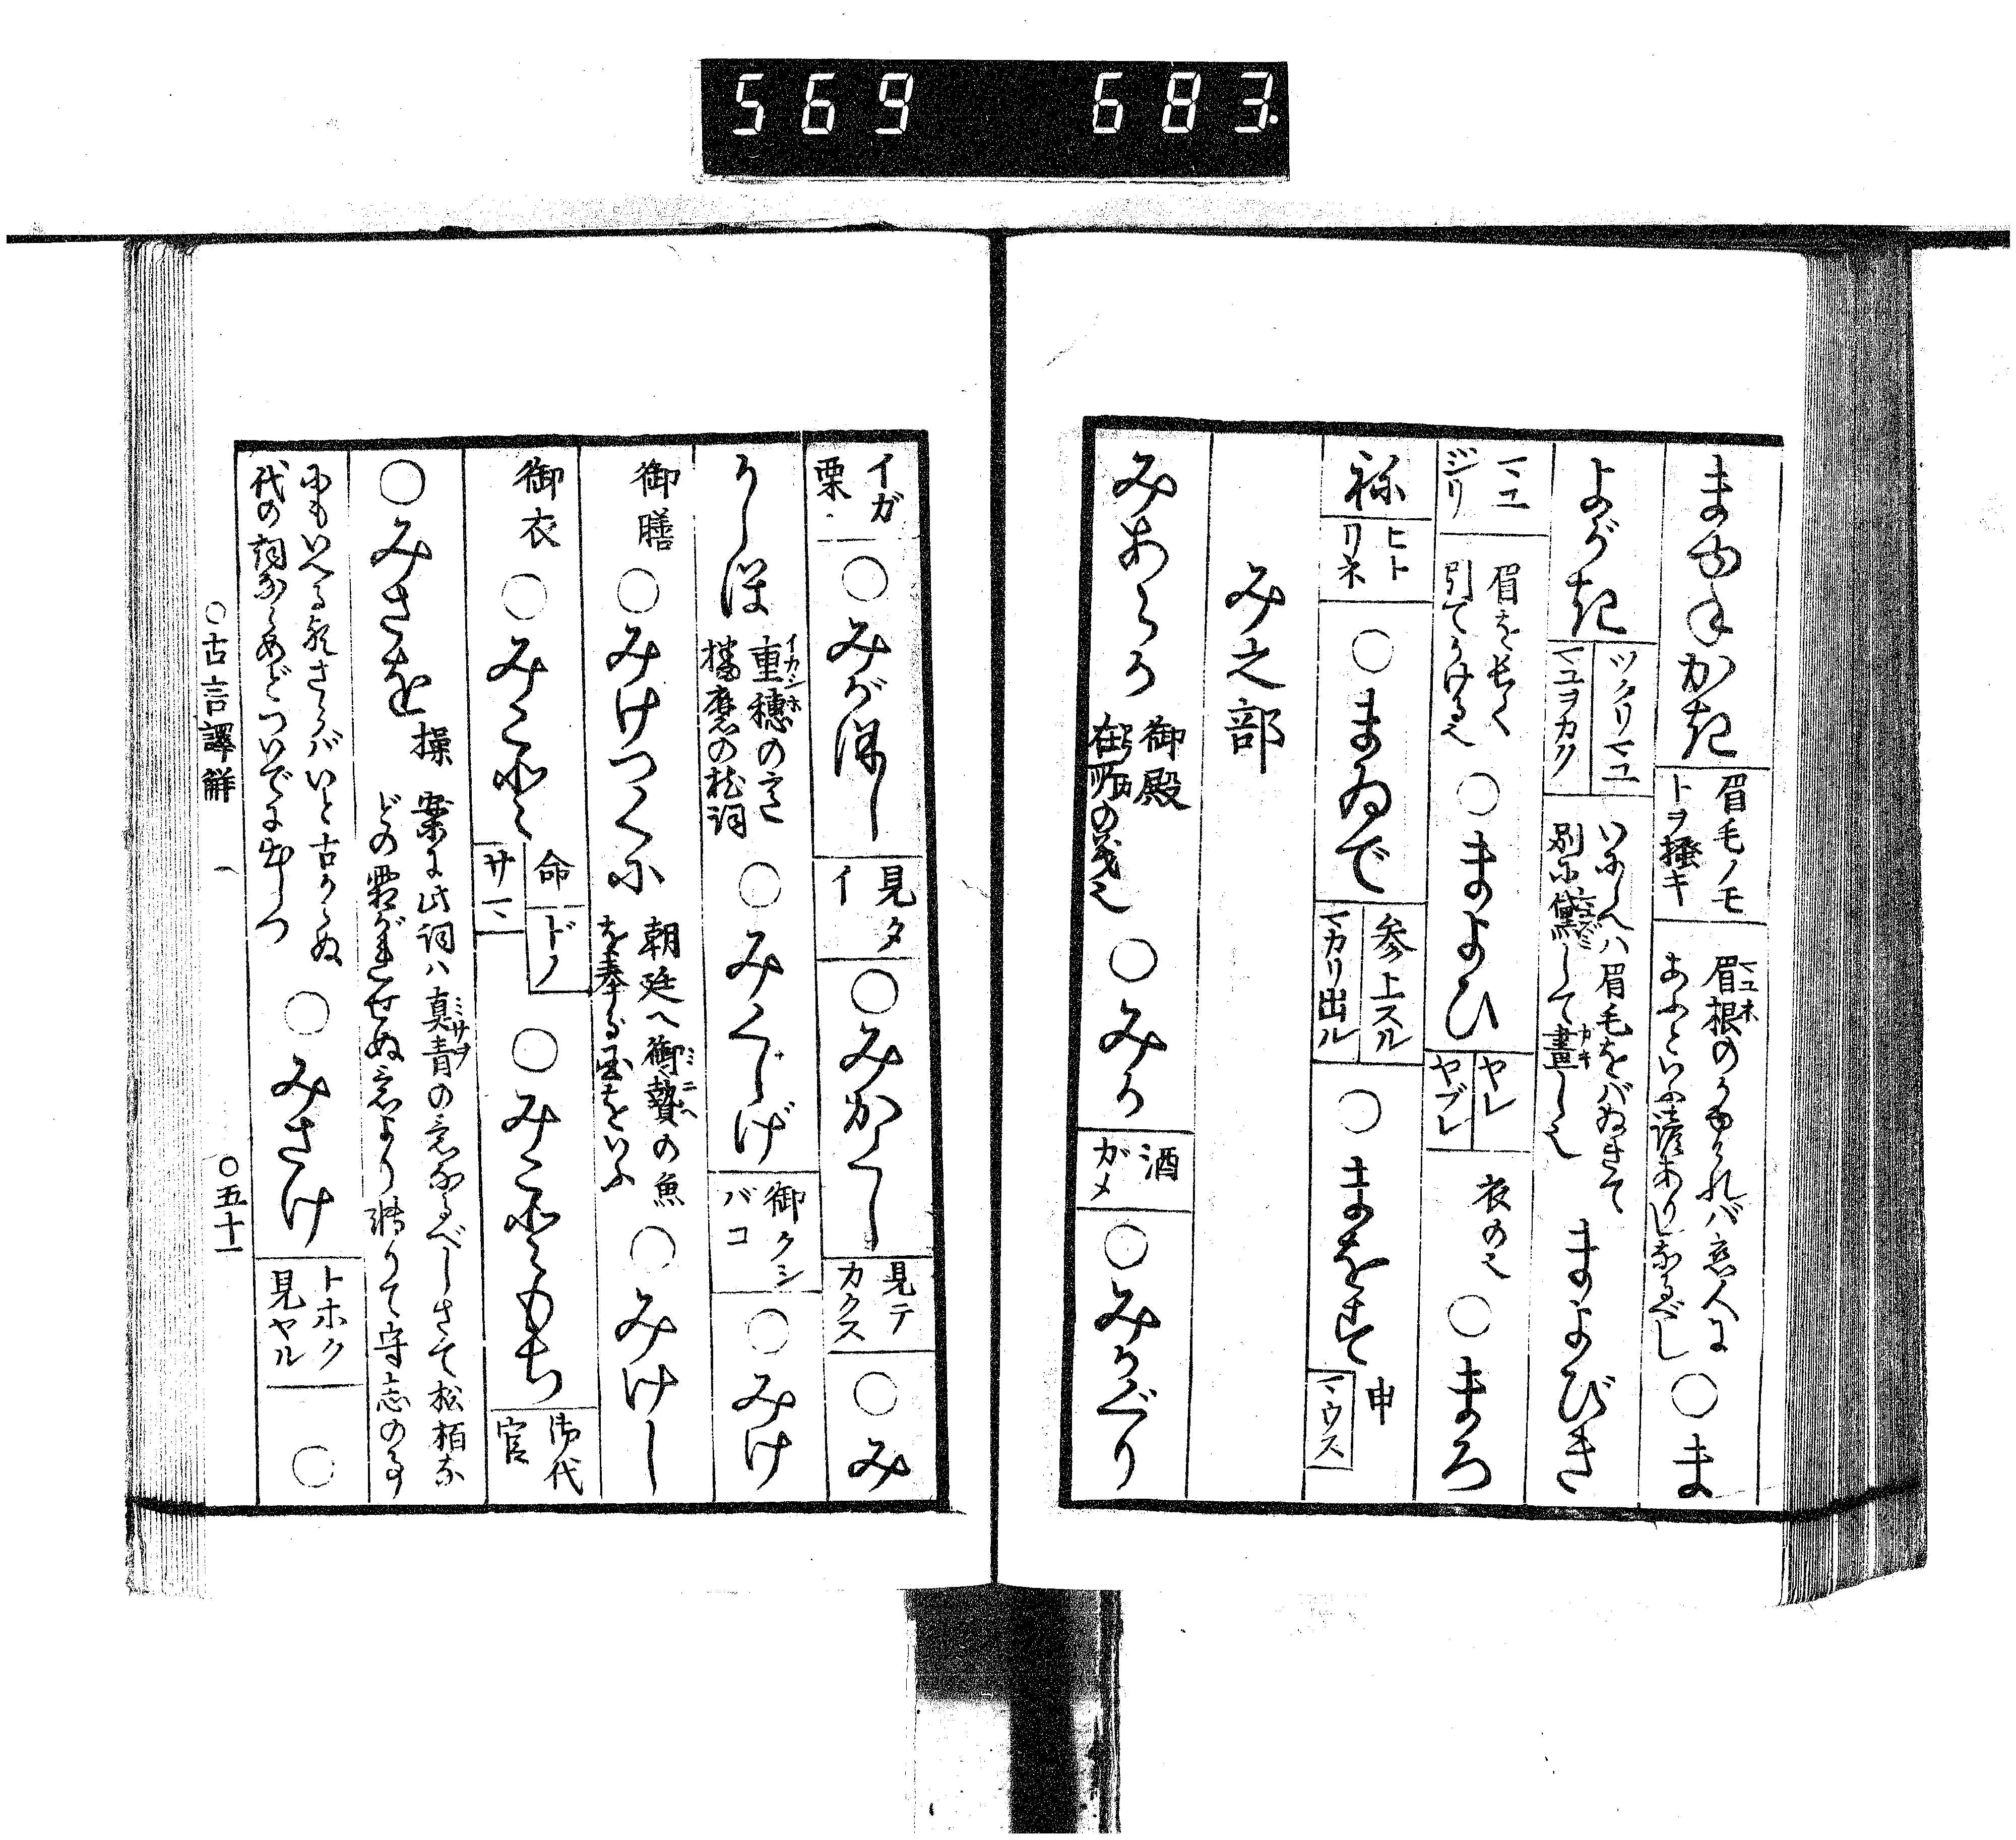 569 683.
まゆねかき 眉毛ノモトヲ掻キ 眉根のかゆかれバ恋人にあふといふ諺ありしなるべし ○ま
よがき ツクリマユ マユヲカク いにしへハ眉毛をバぬきて別に黛して畫しへ まよびき
マユジリ 眉を長く引てかけるへ ○まよひ ヤレ ヤブレ 衣のへ ○まろ
ね ヒトリネ ○まゐで 参上スル マカリ出ル ○まをす 申 マウス
み之部
みあらか 御殿 在所の義也 ○みか 酒ガメ ○みかぐり
イガ栗 ○みがほし 見タイ ○みかくし 見テカクス ○み
かしほ 重穂の意 播磨の枕詞 ○みくしげ 御クシバコ ○みけ
御膳 ○みけつくに 朝廷へ御贄の魚を奉る國をいふ ○みけし
御衣 ○みこと 命 ドノ サマ ○みこともち 御代官
○みさを 操 案に此詞ハ真青の意なるべしさて松柏などの霜がれせぬ意より轉りて守志のる
にもいへるさらバいと古からぬ代の詞ながらめどついでに出しつ ○みさけ トホク見ヤル ○
○古言譯解 ○五十一